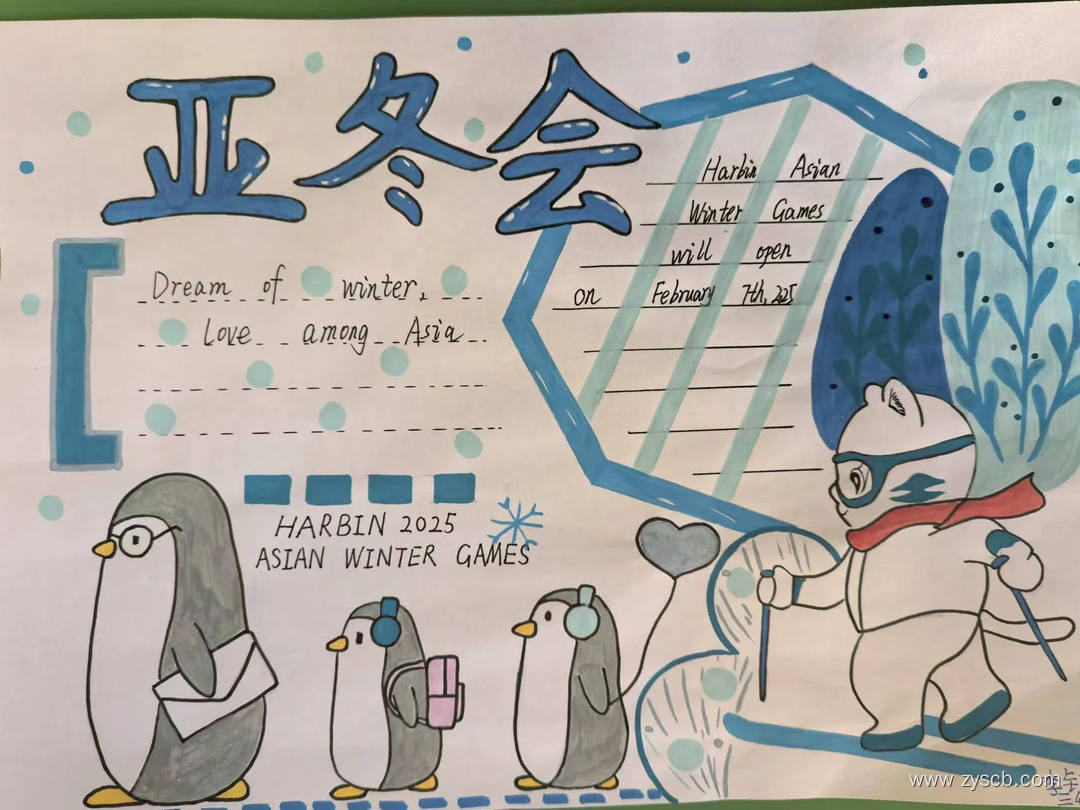 亚冬会
Dream of winter,
Love among Asia
Harbin Asian
Winter Games
will open
on February 7th, 2025
HARBIN 2025
ASIAN WINTER GAMES
www.zyscb.com